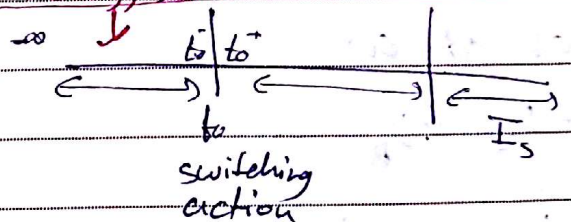 -∞ t₀⁻ t₀⁺
I_s
t₀
switching
action